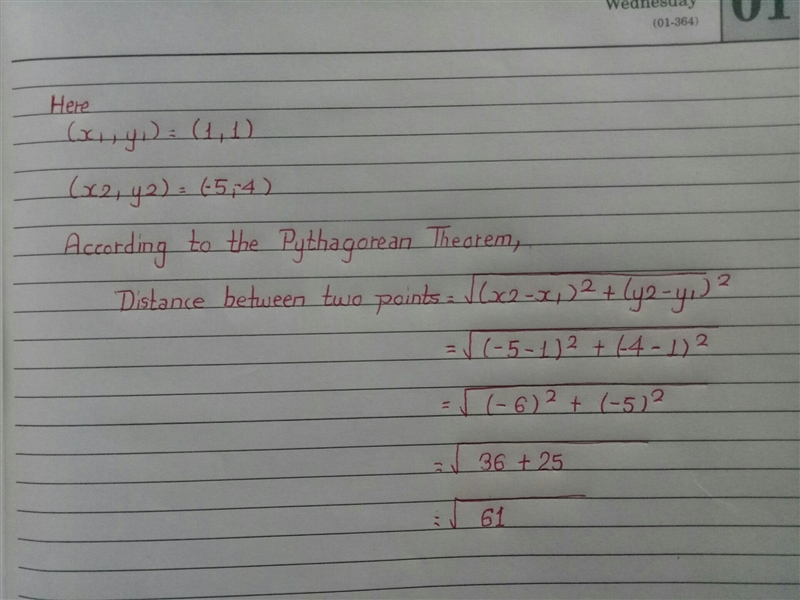 Wednesday
(01-364)
01
Here
(x₁, y₁) = (1, 1)
(x2, y2) = (-5, -4)
According to the Pythagorean Theorem,
Distance between two points = √(x2-x₁)² + (y2-y₁)²
= √(-5-1)² + (-4-1)²
= √(-6)² + (-5)²
= √36 + 25
= √61